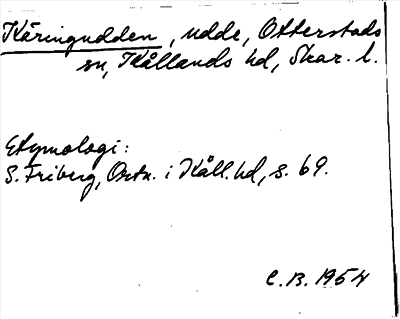 Käringudden, udde, Otterstads
sn, Kållands hd, Skar. l.
Etymologi:
S. Friberg, Ortn. i Kåll. hd, s. 69.
C.B. 1954